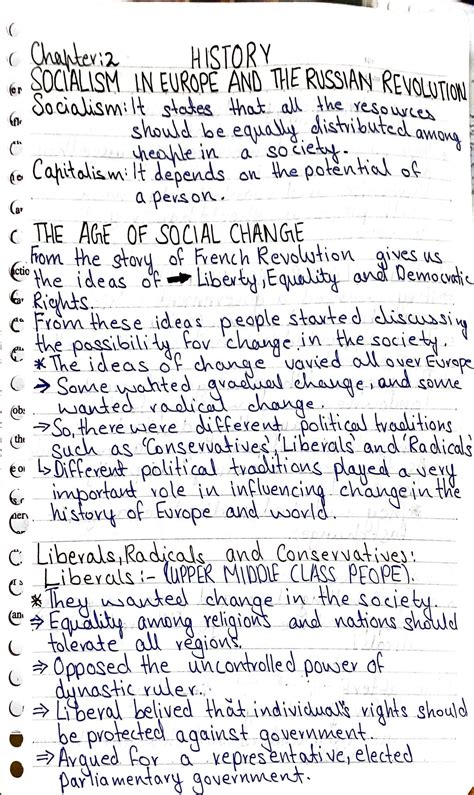 Chapter:2 HISTORY
SOCIALISM IN EUROPE AND THE RUSSIAN REVOLUTION
Socialism: It states that all the resources
should be equally distributed among
people in a society.
Capitalism: It depends on the potential of
a person.
THE AGE OF SOCIAL CHANGE
From the story of French Revolution gives us
the ideas of → Liberty, Equality and Democratic
Rights.
From these ideas people started discussing
the possibility for change in the society.
* The ideas of change varied all over Europe
→ Some wanted gradual change, and some
wanted radical change.
→ So, there were different political traditions
such as 'Conservatives', 'Liberals' and 'Radicals'
↳ Different political traditions played a very
important role in influencing change in the
history of Europe and world.
Liberals, Radicals and Conservatives:
Liberals:- (UPPER MIDDLE CLASS PEOPE).
* They wanted change in the society.
⇒ Equality among religions and nations should
tolerate all regions.
⇒ Opposed the uncontrolled power of
dynastic ruler.
⇒ Liberal belived that individual's rights should
be protected against government.
⇒ Argued for a representative, elected
parliamentary government.